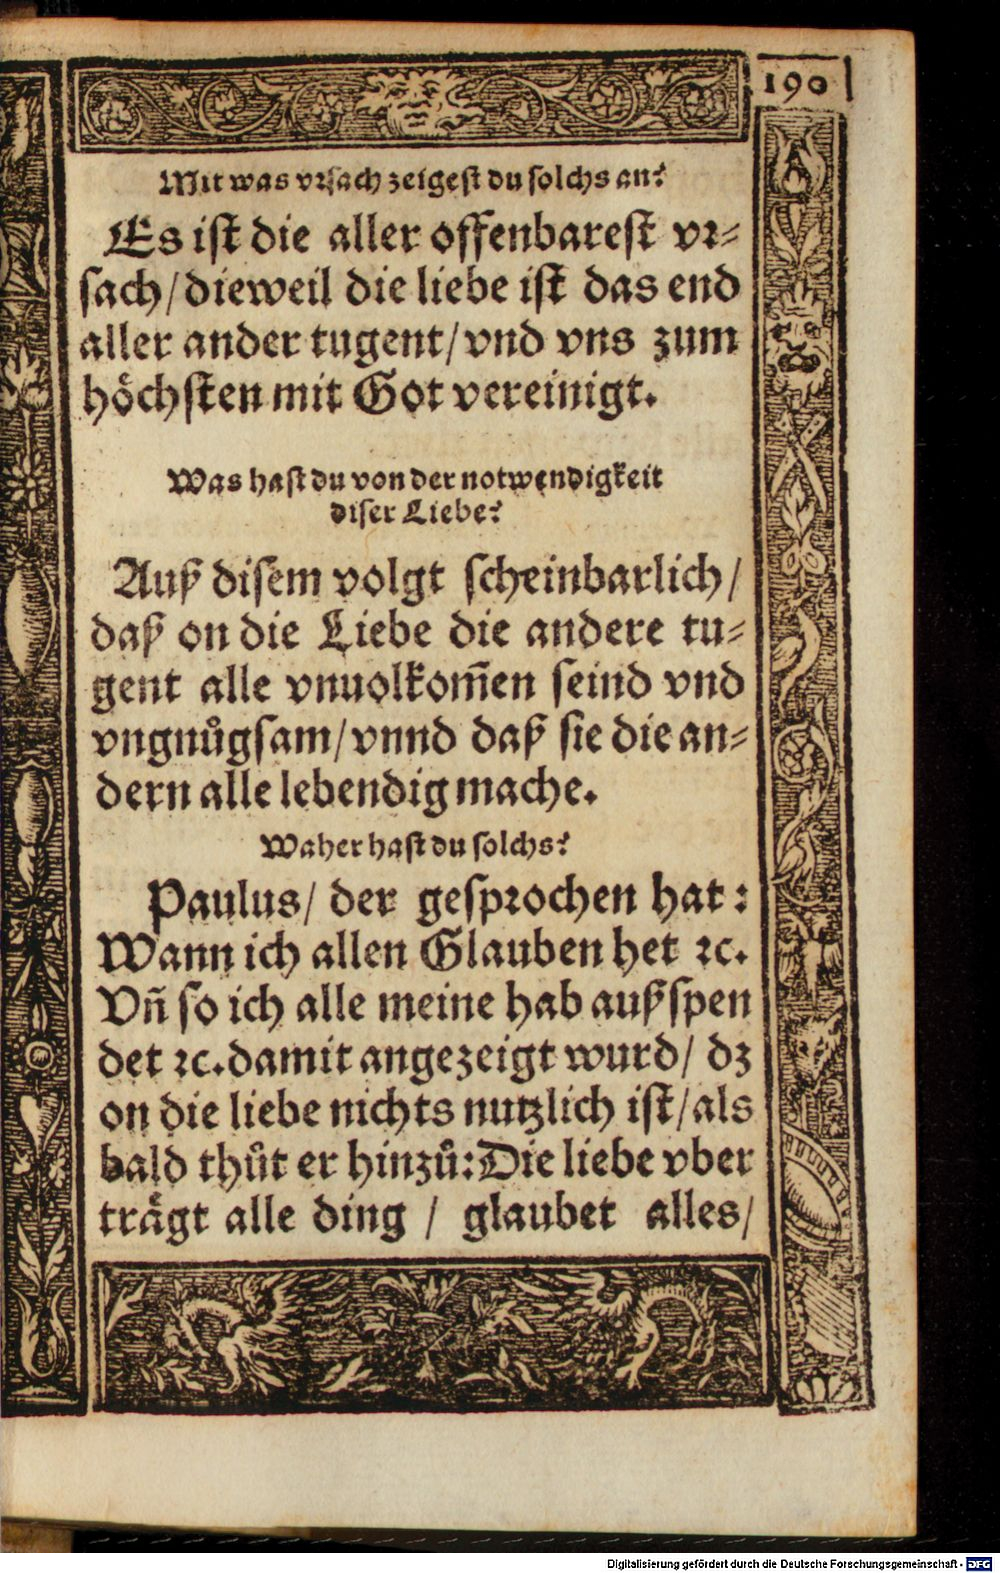 190
Mit was vrsach zeigest du solchs an?
Es ist die aller offenbarest vr⸗
sach/dieweil die liebe ist das end
aller ander tugent/vnd vns zum
hoͤchsten mit Got vereinigt.
Was hast du von der notwendigkeit
diser Liebe?
Auß disem volgt scheinbarlich/
daß on die Liebe die andere tu⸗
gent alle vnuolkom̃en seind vnd
vngnuͦgsam/vnnd daß sie die an⸗
dern alle lebendig mache.
Waher hast du solchs?
Paulus/ der gesprochen hat:
Wann ich allen Glauben het ꝛc.
Vñ so ich alle meine hab außspen
det ꝛc.damit angezeigt wurd/ dz
on die liebe nichts nutzlich ist/als
bald thuͦt er hinzuͦ:Die liebe vber
traͤgt alle ding / glaubet alles/
Digitalisierung gefördert durch die Deutsche Forschungsgemeinschaft - DFG